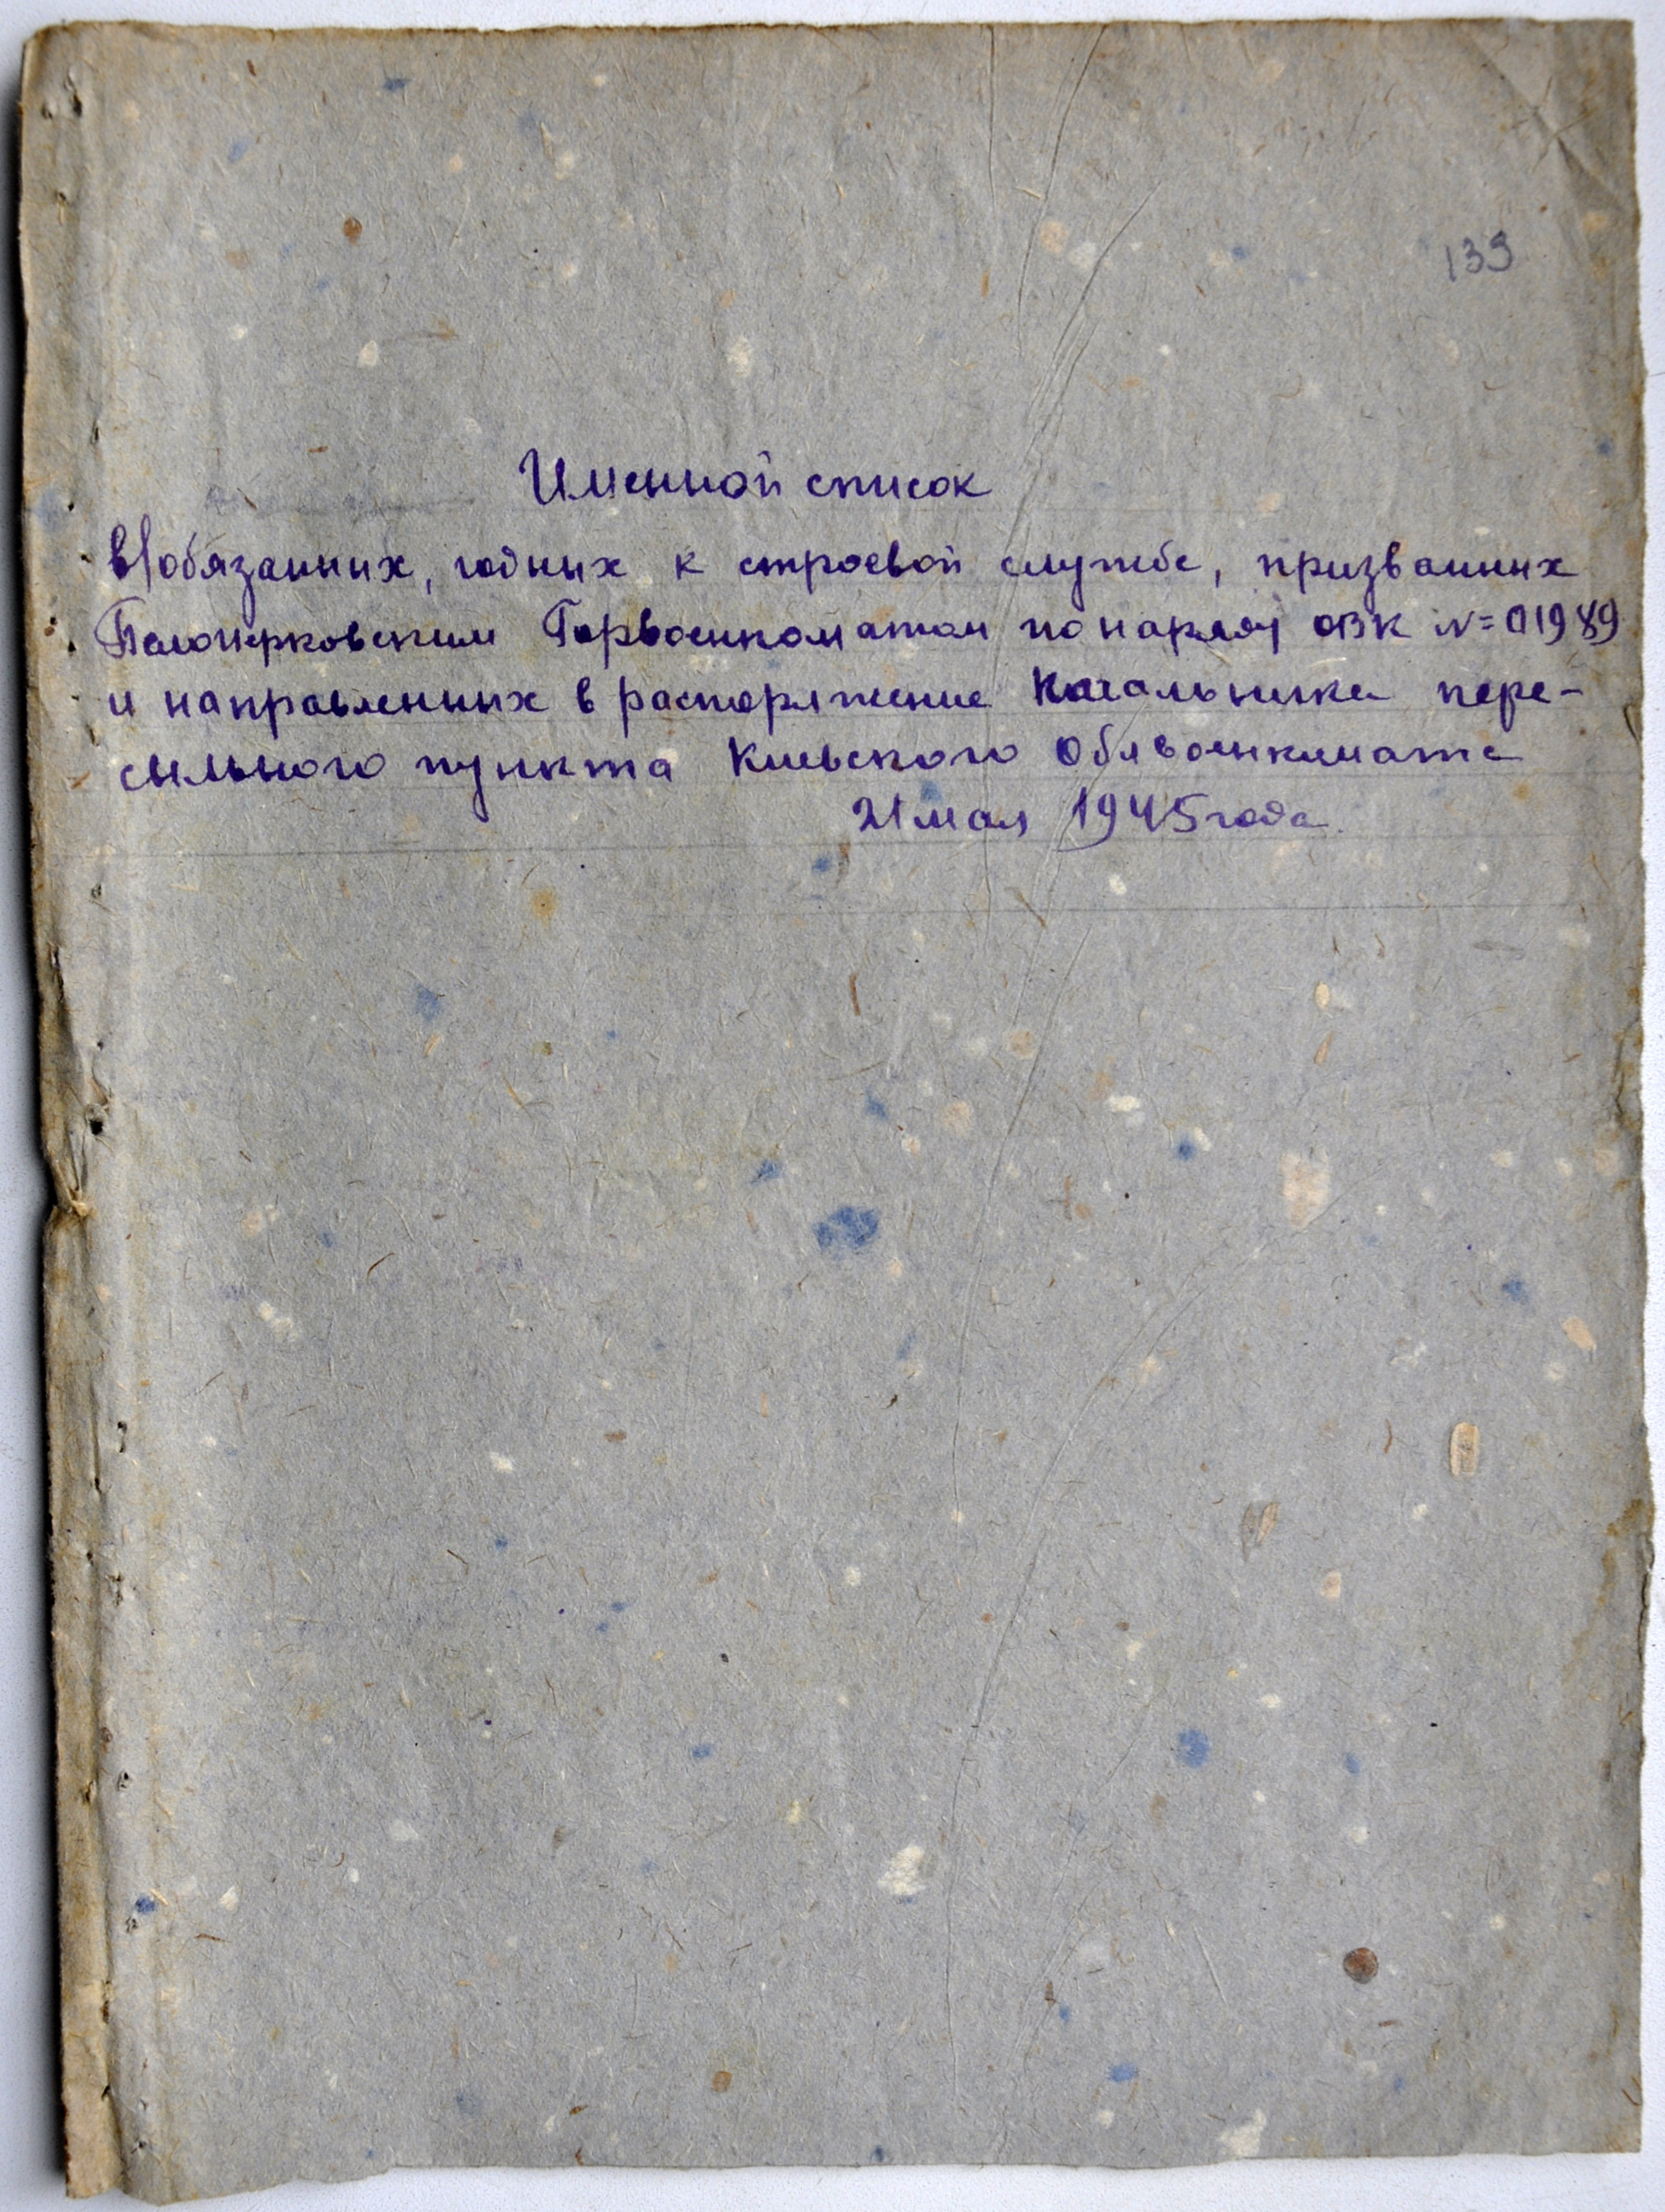 139
Именной список
в/обязанных, годных к строевой службе, призванных
Белоцерковским Горвоенкоматом по наряду ОВК N=01989
и направленных в распоряжение Начальника пере-
сыльного пункта Киевского Облвоенкомата
21 мая 1945 года.